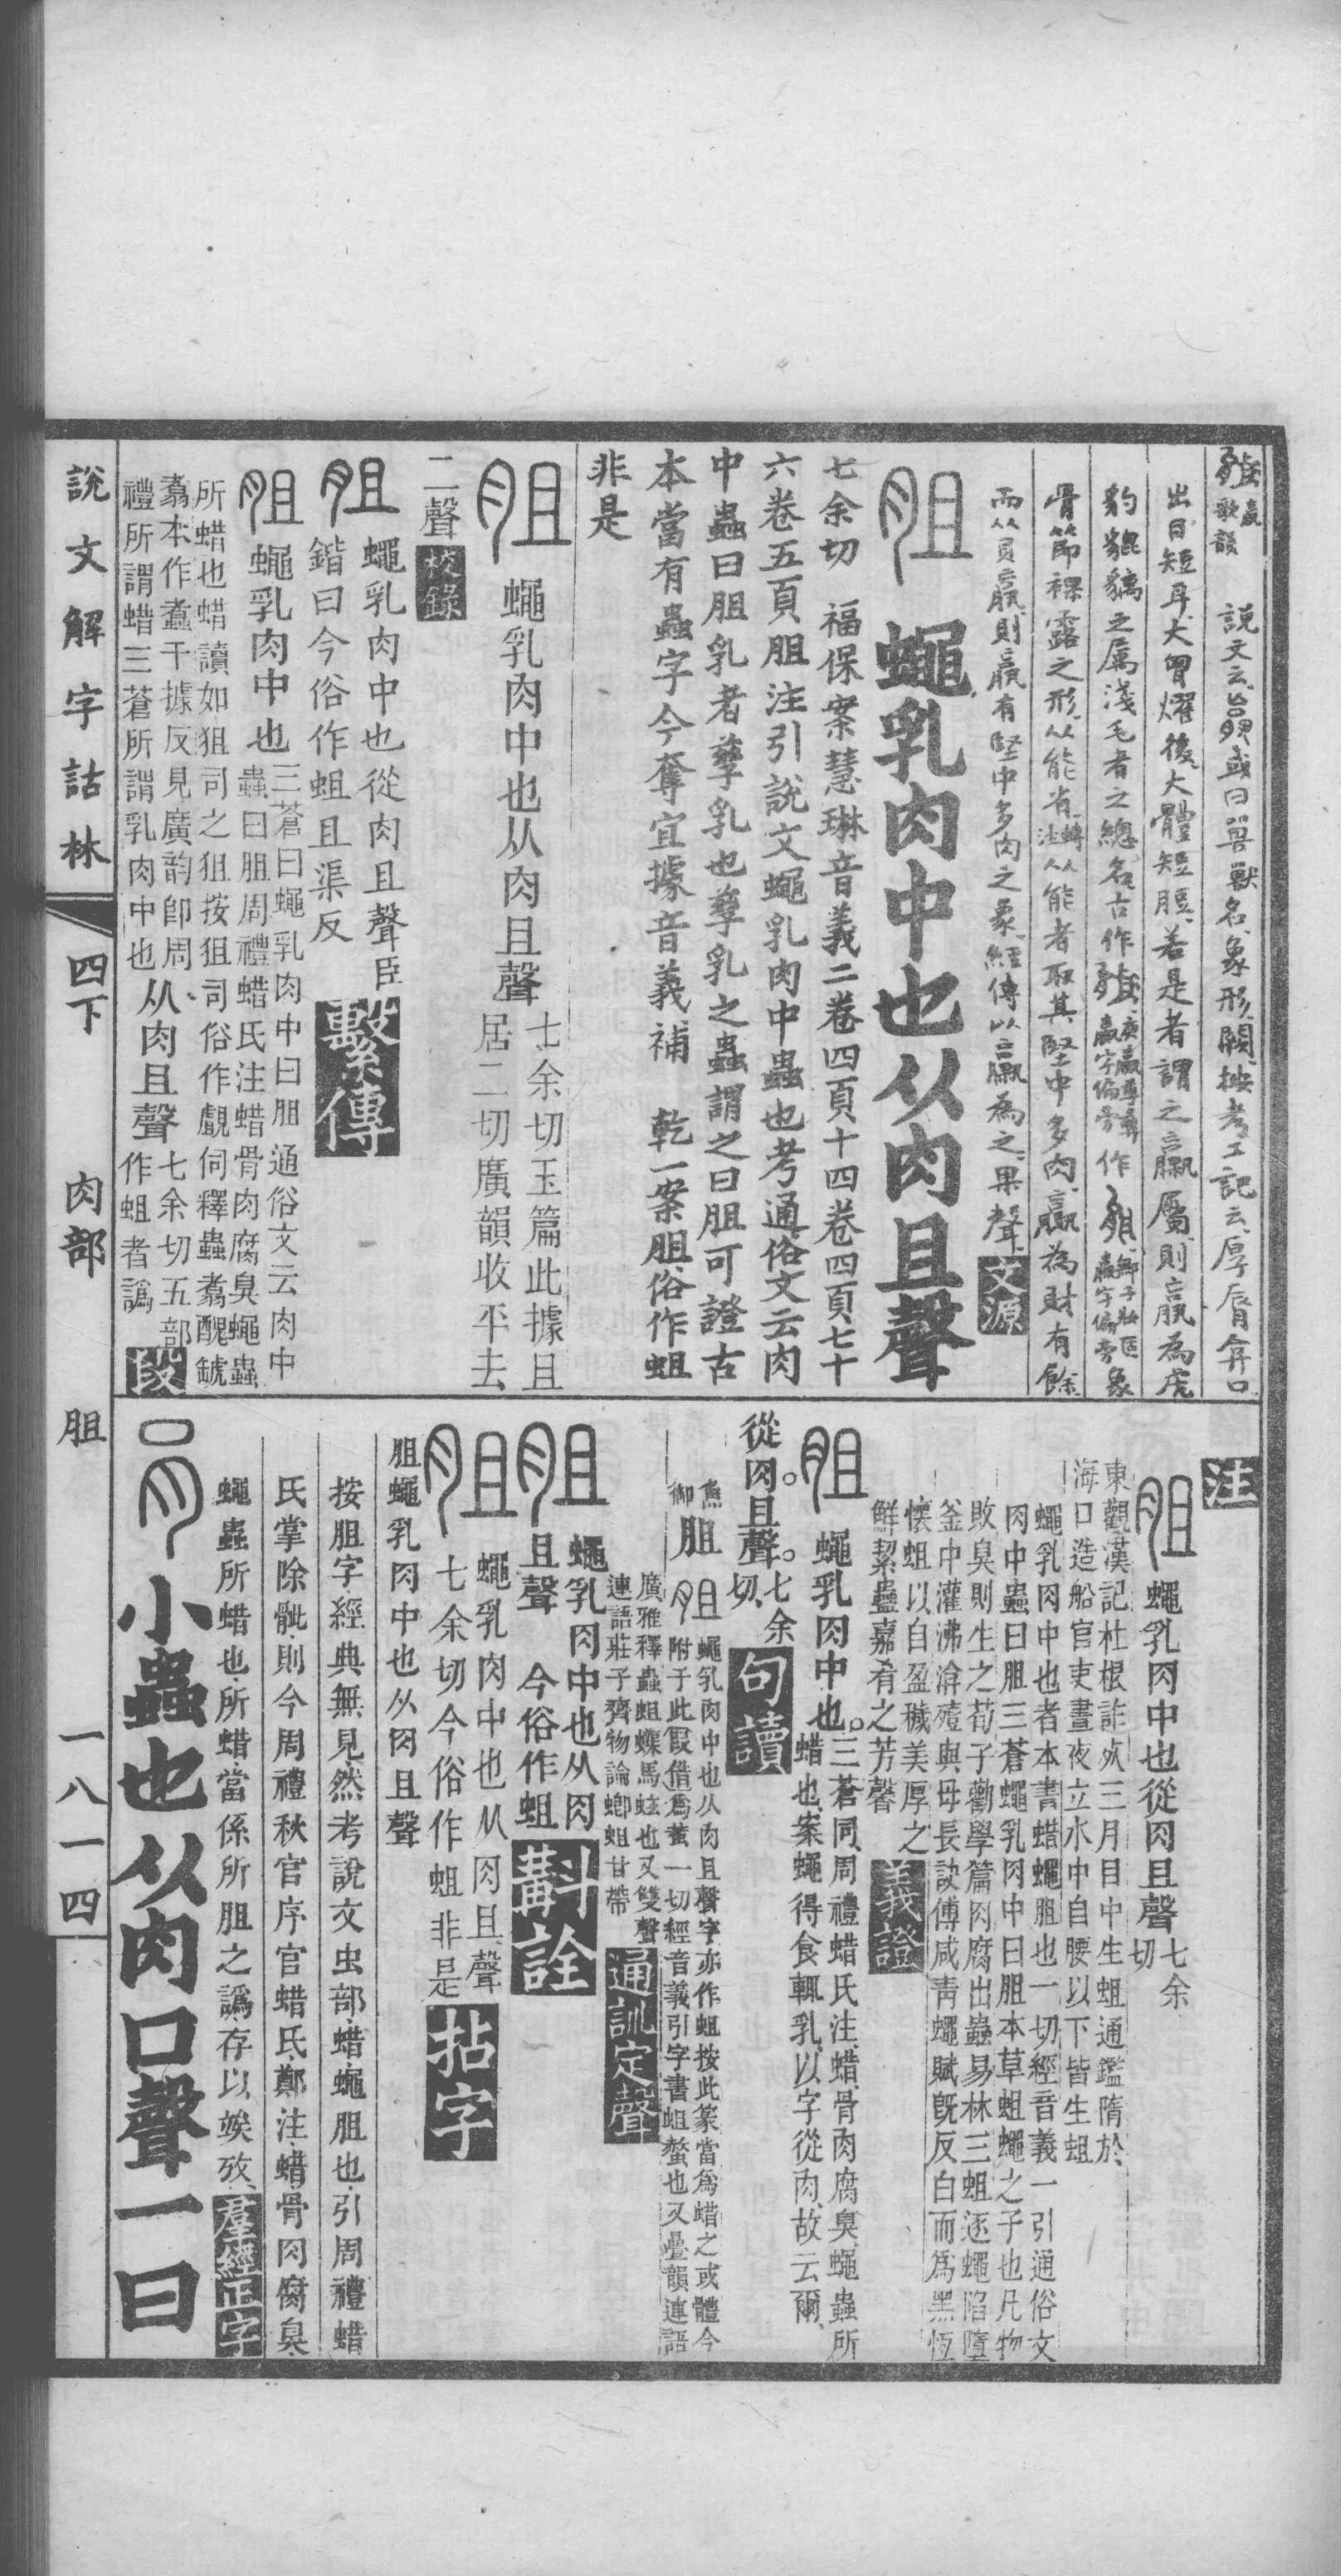 歌韻　說文云或曰嘼獸名象形闕按考工記云厚脣弇口
出目短耳大胷燿後大體短脰若是者謂之臝屬則臝爲虎
豹貔貐之屬淺毛者之總名古作作象
骨節裸露之形从能省轉注从能者取其堅中多肉贏爲財有餘
而从貝臝則贏有堅中多肉之象經傳以臝爲之果聲文源
胆蠅乳肉中也从肉且聲
七余切　福保案慧琳音義二卷四頁十四卷四頁七十
六卷五頁胆注引說文蠅乳肉中蟲也考通俗文云肉
中蟲曰胆乳者孳乳也孳乳之蟲謂之曰胆可證古
本當有蟲字今奪宜據音義補　乾一案胆俗作蛆
非是
胆蠅乳肉中也从肉且聲七余切玉篇此據且
居二切廣韻收平去
二聲校錄
胆蠅乳肉中也從肉且聲臣
鍇曰今俗作蛆且渠反繫傳
胆蠅乳肉中也三蒼曰蠅乳肉中曰胆通俗文云肉中
蟲曰胆周禮蜡氏注蜡骨肉腐臭蠅蟲
所蜡也蜡讀如狙司之狙按狙司俗作覰伺釋蟲翥醜罅
翥本作䗪干據反見廣韵卽周
禮所謂蜡三蒼所謂乳肉中也从肉且聲七余切五部
作蛆者譌段
說文解字詁林　四下　肉部　胆　一八一四
注
胆蠅乳肉中也從肉且聲七余
切
東觀漢記杜根詐死三月目中生蛆通鑑隋於
海口造船官吏晝夜立水中自腰以下皆生蛆
蠅乳肉中也者本書蜡蠅胆也一切經音義一引通俗文
肉中蟲曰胆三蒼蠅乳肉中曰胆本草蛆蠅之子也凡物
敗臭則生之荀子勸學篇肉腐出蟲易林三蛆逐蠅陷墮
釜中灌沸渰殪與母長訣傅咸靑蠅賦旣反白而爲黑恆
懷蛆以自盈穢美厚之
鮮絜蠱嘉肴之芳馨義證
胆蠅乳肉中也。三蒼同周禮蜡氏注蜡骨肉腐臭蠅蟲所
蜡也案蠅得食輒乳以字從肉故云爾
從肉。且聲。七余
切句讀
胆蠅乳肉中也从肉且聲字亦作蛆按此篆當爲蜡之或體今
附于此叚借爲䖧一切經音義引字書蛆螫也又疊韻連語
廣雅釋蟲蛆蝶馬蚿也又雙聲
連語莊子齊物論蝍蛆甘帶通訓定聲
胆蠅乳肉中也从肉
且聲　今俗作蛆斠詮
胆蠅乳肉中也从肉且聲
七余切今俗作蛆非是拈字
胆蠅乳肉中也从肉且聲
按胆字經典無見然考說文虫部蜡蠅胆也引周禮蜡
氏掌除骴則今周禮秋官序官蜡氏鄭注蜡骨肉腐臭
蠅蟲所蜡也所蜡當係所胆之譌存以竢攷羣經正字
肙小蟲也从肉口聲一曰